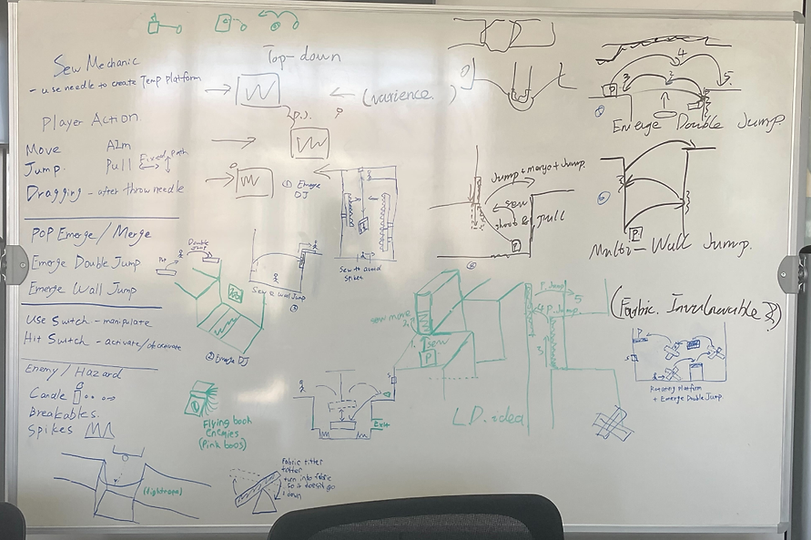 Sew Mechanic
- use needle to create Temp platform
Player Action:
Move Aim
Jump. Pull Fixed path
Dragging - after throw needle
POP Emerge / Merge
Emerge Double Jump
Emerge Wall Jump
Use Switch - manipulate
Hit Switch - activate/deactivate
Enemy / Hazard
Candle
Breakables.
Spikes
(tightrope)
Top-down
(varience. )
D.J.
① Emerge
DJ
Double
Jump
Sew & Wall Jump
② Emerge DJ
Sew to avoid
Spikes
Flying book
Enemies
(Pink boos)
Fabric titter
totter
turn into fabric
so it doesn't go
down
Exit
Jump + merge + Jump.
sew
shoot & Pull
P
sew
P
P Jump
5
4 P Jump
3
L.D. idea
4
3 2 5.
P
Emerge Double Jump.
P
Multi-Wall Jump.
(Fabric. Invulnerable ?)
P
Rotating Platform
+ Emerge Double Jump